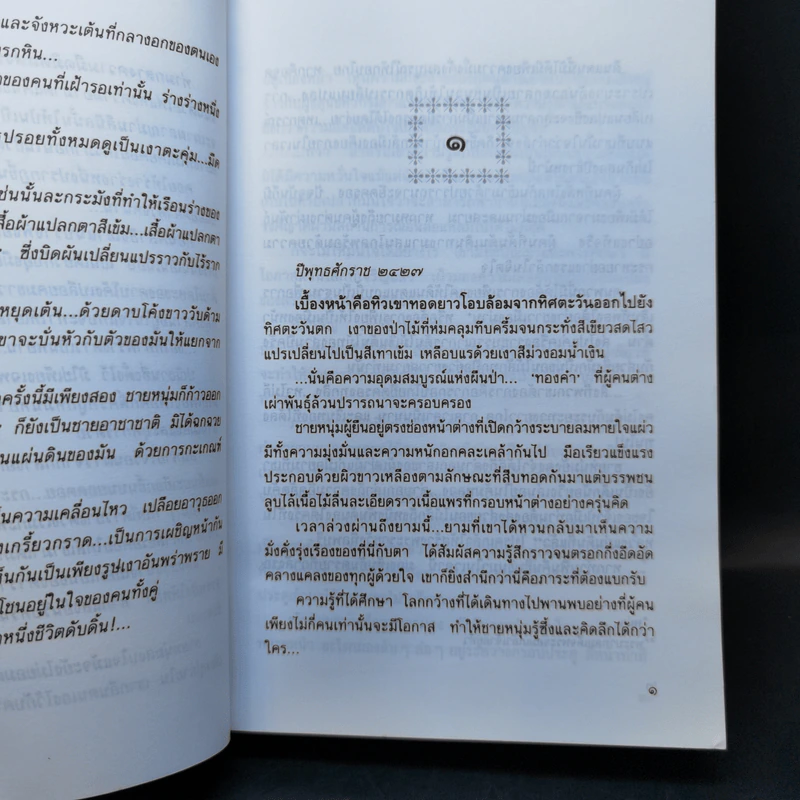 และจังหวะเต้นที่กลางอกของตนเอง
รกหิน...
ของคนที่เฝ้ารอเท่านั้น ร่างร่างหนึ่ง
ปรอยทั้งหมดดูเป็นเงาตะคุ่ม...มิด
ช่นนั้นละกระมังที่ทำให้เรือนร่างของ
สื้อผ้าแปลกตาสีเข้ม...เสื้อผ้าแปลกตา
ซึ่งบิดผันเปลี่ยนแปรราวกับไร้ราก
หยุดเต้น...ด้วยดาบโค้งขาววับด้าม
ขาจะบั่นหัวกับตัวของมันให้แยกจาก
ครั้งนี้มีเพียงสอง ชายหนุ่มก็ก้าวออก
ก็ยังเป็นชายอาชาชาติ มิได้ฉกฉวย
นแผ่นดินของมัน ด้วยการกะเกณฑ์
นความเคลื่อนไหว เปลือยอาวุธออก
งเกรี้ยวกราด...เป็นการเผชิญหน้ากัน
ห็นกันเป็นเพียงรูปเงาอันพร่าพราย มี
โชนอยู่ในใจของคนทั้งคู่
หนึ่งชีวิตดับดิ้น!...
๑
ปีพุทธศักราช ๒๔๒๗
เบื้องหน้าคือทิวเขาทอดยาวโอบล้อมจากทิศตะวันออกไปยัง
ทิศตะวันตก เงาของป่าไม้ที่ห่มคลุมทึบครึ้มจนกระทั่งสีเขียวสดไสว
แปรเปลี่ยนไปเป็นสีเทาเข้ม เหลือบแรด้วยเงาสีม่วงอมน้ำเงิน
...นั่นคือความอุดมสมบูรณ์แห่งผืนป่า... 'ทองคำ' ที่ผู้คนต่าง
เผ่าพันธุ์ล้วนปรารถนาจะครอบครอง
ชายหนุ่มผู้ยืนอยู่ตรงช่องหน้าต่างที่เปิดกว้างระบายลมหายใจแผ่ว
มีทั้งความมุ่งมั่นและความหนักอกคละเคล้ากันไป มือเรียวแข็งแรง
ประกอบด้วยผิวขาวเหลืองตามลักษณะที่สืบทอดกันมาแต่บรรพชน
ลูบไล้เนื้อไม้ลื่นละเอียดราวเนื้อแพรที่กรอบหน้าต่างอย่างครุ่นคิด
เวลาล่วงผ่านถึงยามนี้...ยามที่เขาได้หวนกลับมาเห็นความ
มั่งคั่งรุ่งเรืองของที่นี่กับตา ได้สัมผัสความรู้สึกราวจนตรอกกึ่งอึดอัด
คลางแคลงของทุกผู้ด้วยใจ เขาก็ยิ่งสำนึกว่านี่คือภาระที่ต้องแบกรับ
ความรู้ที่ได้ศึกษา โลกกว้างที่ได้เดินทางไปพานพบอย่างที่ผู้คน
เพียงไม่กี่คนเท่านั้นจะมีโอกาส ทำให้ชายหนุ่มรู้ซึ้งและคิดลึกได้กว่า
ใคร...
๑